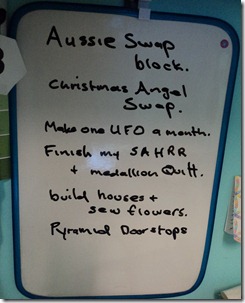 Aussie Swap
block.
Christmas Angel
Swap.
Make one UFO a month.
Finish my SAHRR
+ medallion Quilt.
build houses +
sew flowers.
Pyramid Doorstops